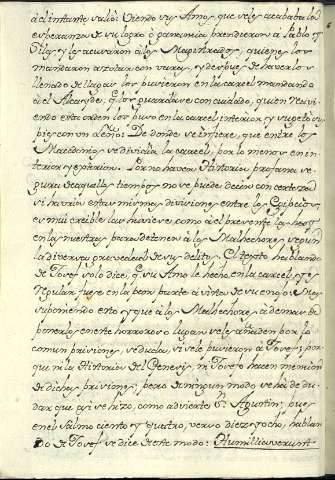 al instante salió. Viendo sus Amos, que se les acababa la
esperanza de su logro ò ganancia prendieron à Pablo y
Silas y los acusaron à los Magistrados, quienes los
mandaron azotar con varas, y despues de haverlos
llenado de llagas los pusieron en la carcel mandando
à el Alcayde, q. los guardase con cuidado, quien recivi
endo esta orden los puso en la carcel interior y sugeto sus
pies con un De donde se infiere, que entre los
Macedonios se dividia la carcel por lo menos en in
terior y exterior. Por no haver Historia profana se
gura de aquellos tiempos no se puede decir con certeza
si havria estas mismas divisiones entre los Egipcios;
es mui creible las huviese, como à el presente las hay
en las nuestras para detener à los Malhechores segun
la diversa gravedad de sus delitos. El texto hablando
de Josef solo dice, q. su Amo le hecho en la carcel, y es
regular fuese en la peor parte à vista de su enojo: Mas
suponiendo esto y que à los Malhechores ademas de
ponerlos en este horroroso lugar se les añaden por lo
comun prisiones, se duda, si se le pusieron à Josef; por
que ni la Historia del Genesis, ni Josefo hacen mencion
de dichas prisiones, pero de ningun modo se ha de du
dar que asi se hizo, como advierte S. Agustin; pues
en el Salmo ciento y quatro, verso diez y ocho, hablan
do de Josef se dice de este modo: Humiliaverunt